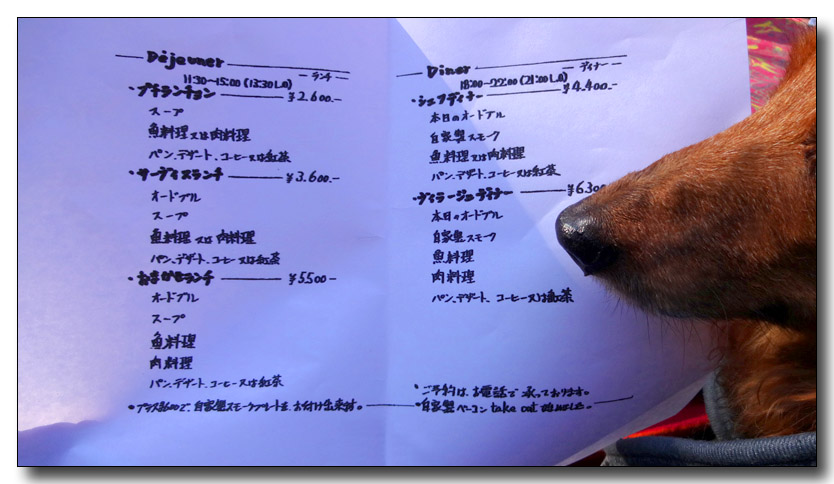 Déjeuner
ランチ
11:30〜15:00 (13:30 L.O)
・プチランチョン ¥2.600.-
スープ
魚料理又は肉料理
パン、デザート、コーヒー又は紅茶
・サーディスランチ ¥3.600.-
オードブル
スープ
魚料理又は肉料理
パン、デザート、コーヒー又は紅茶
・おまかせランチ ¥5.500-
オードブル
スープ
魚料理
肉料理
パン、デザート、コーヒー又は紅茶
・プラス¥600で、自家製スモークプレートを、お付け出来ます。
Diner
ディナー
18:00〜22:00 (21:00 L.O)
・シェフディナー ¥4.400.-
本日のオードブル
自家製スモーク
魚料理又は肉料理
パン、デザート、コーヒー又は紅茶
・ヴィラージュディナー ¥6.300
本日のオードブル
自家製スモーク
魚料理
肉料理
パン、デザート、コーヒー又は紅茶
・ご予約は、お電話で承っております。
・自家製ベーコン take out